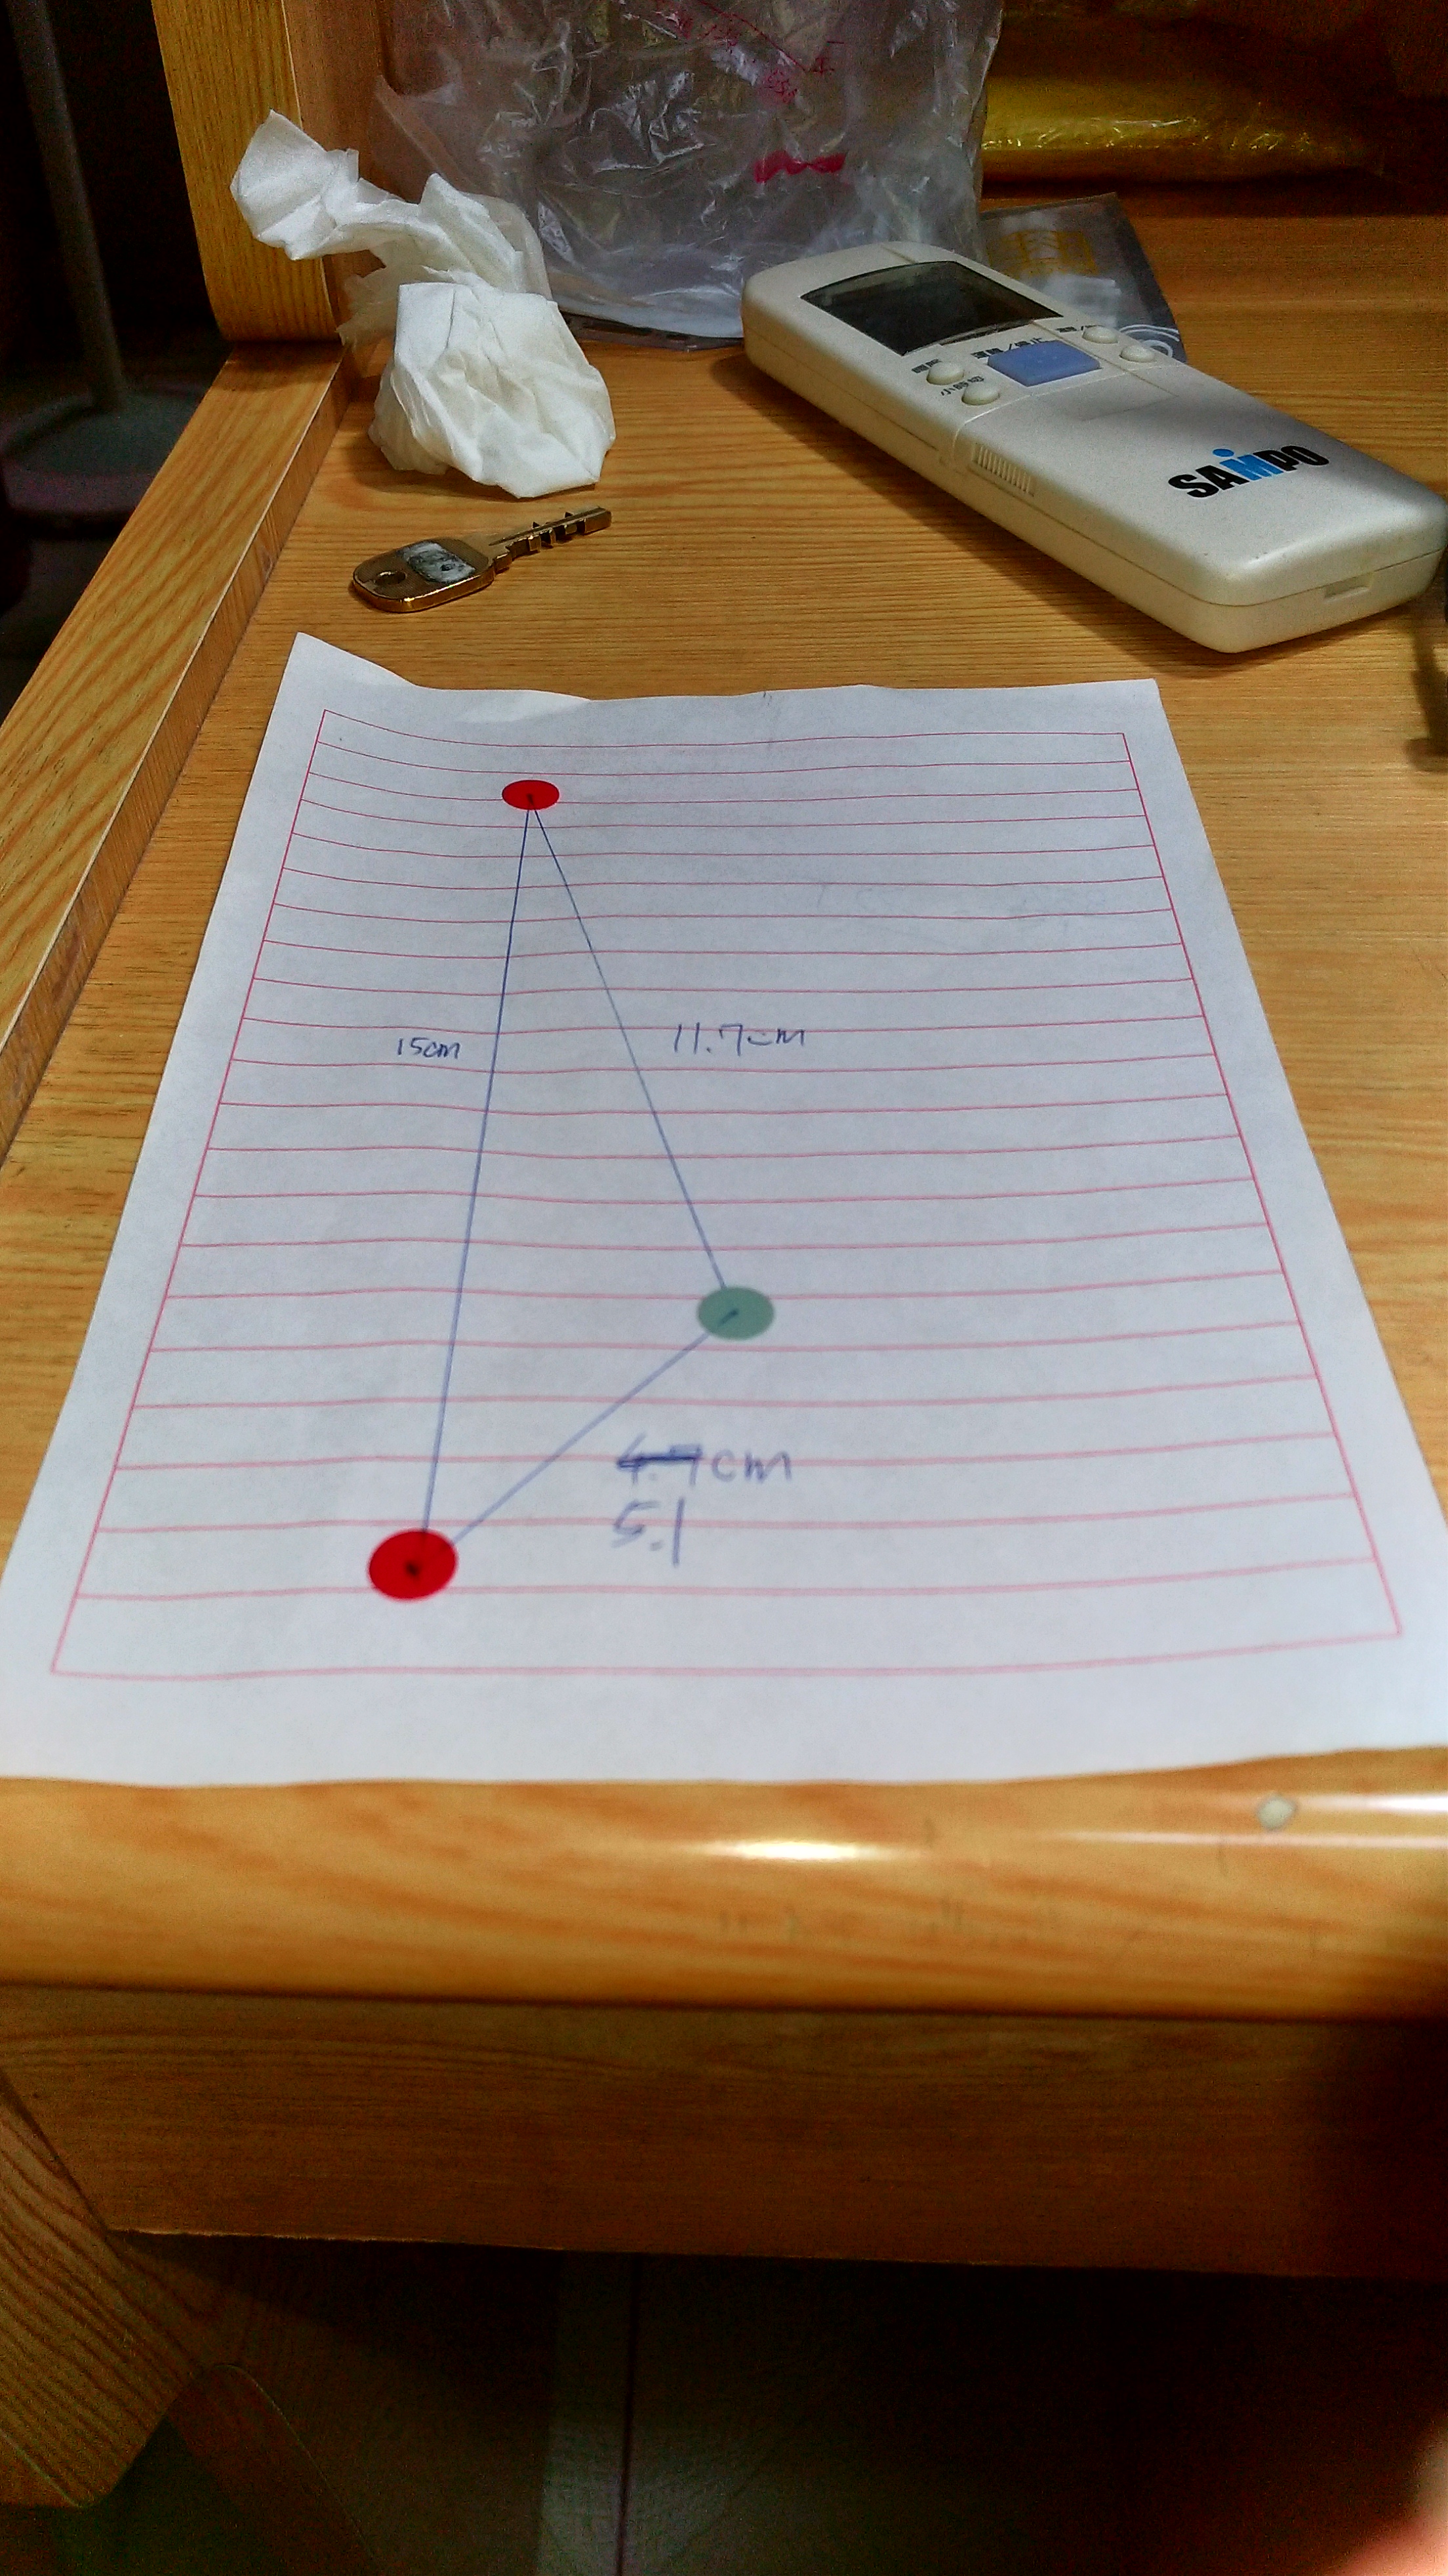 SAMPO
15cm
11.7cm
4.7cm
5.1